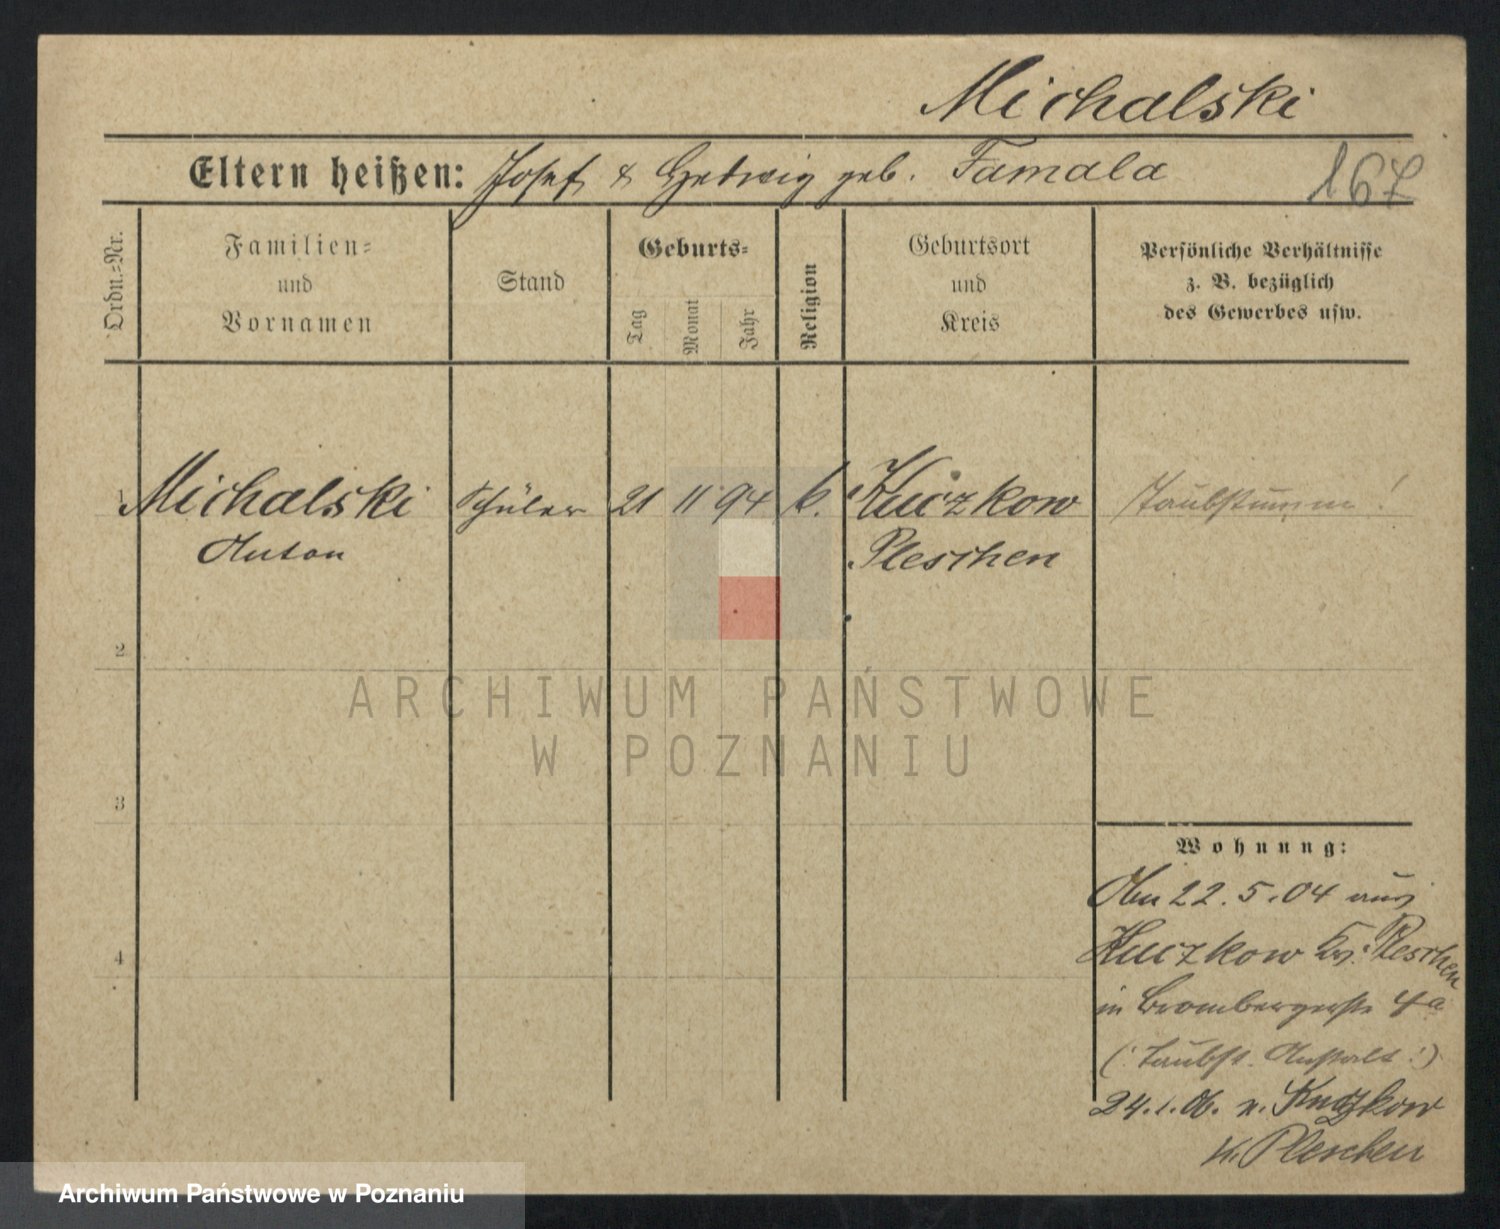 Michalski
Eltern heißen: Josef & Hedwig geb. Famala
167
Ordn.=Nr.
Familien=
und
Vornamen
Stand
Geburts=
Tag
Monat
Jahr
Religion
Geburtsort
und
Kreis
Persönliche Verhältnisse
z. B. bezüglich
des Gewerbes usw.
1 Michalski Schüler 21 11 94 k. Kuczkow Taubstumm!
Anton Pleschen
2
ARCHIWUM PAŃSTWOWE
W POZNANIU
3
Wohnung:
Am 22.5.04 aus
Kuczkow Kr. Pleschen
4
in Brombergerstr 4a
(: Taubst. Anstalt :)
24.1.06. n. Kuczkow
Kr. Pleschen
Archiwum Państwowe w Poznaniu